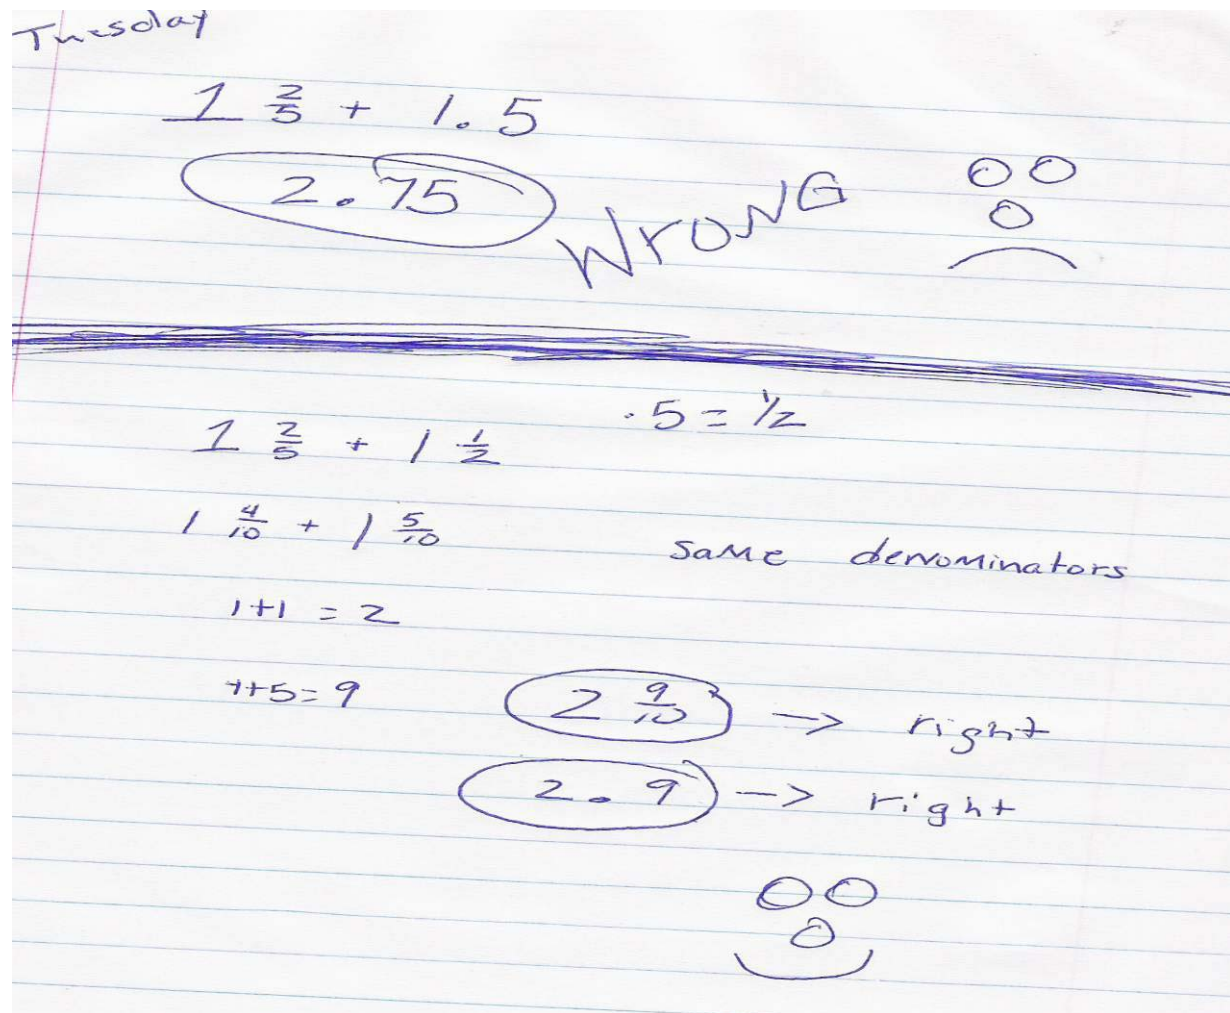 Tuesday
1 2/5 + 1.5
2.75
WrONG
.5 = 1/2
1 2/5 + 1 1/2
1 4/10 + 1 5/10
same denominators
1+1 = 2
4+5=9
2 9/10 → right
2.9 → right